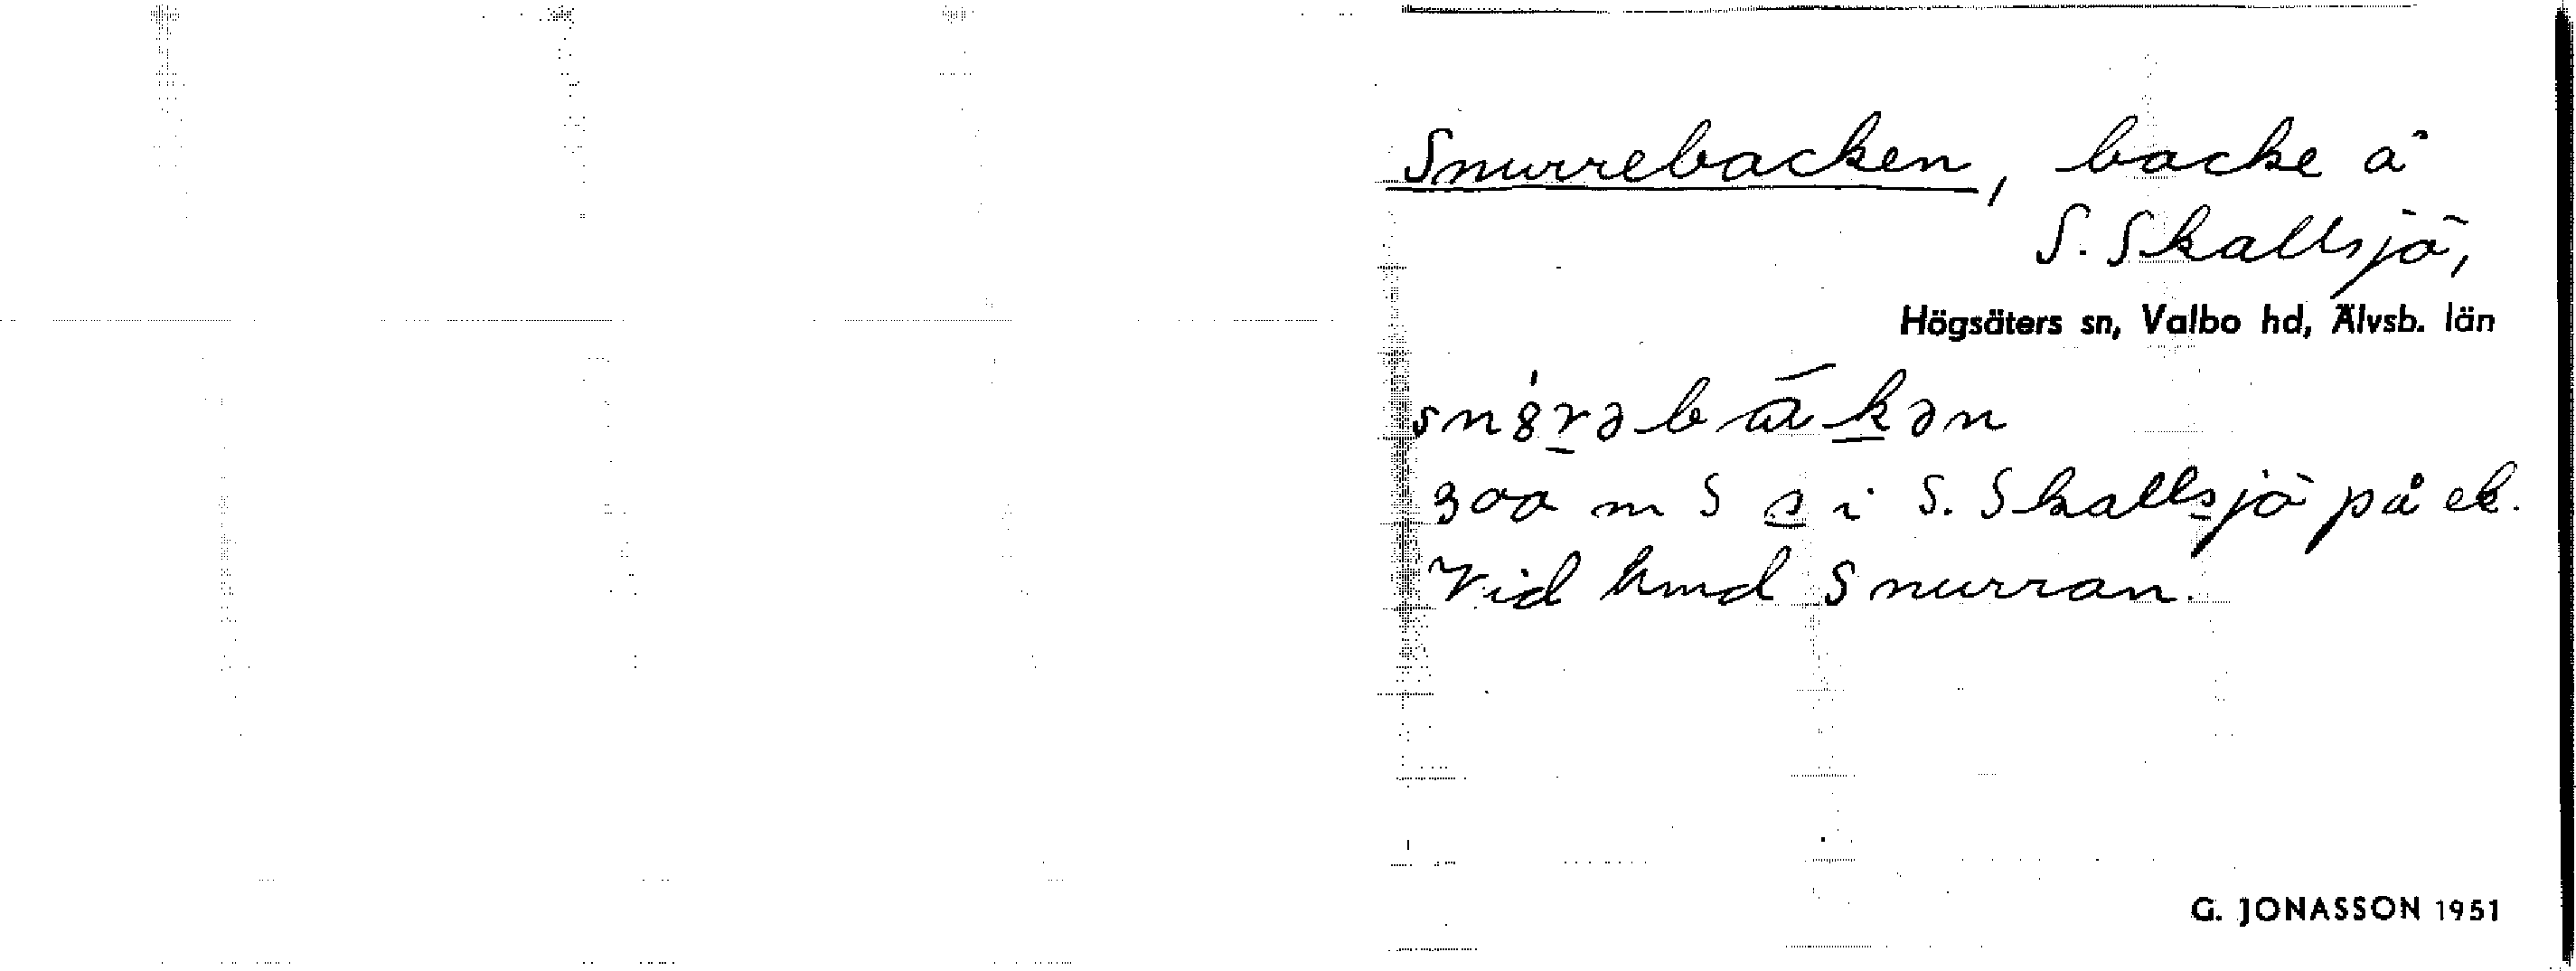 Snurrebacken, backe å
S. Skallsjö,
Högsäters sn, Valbo hd, Älvsb. län
300 m S s i S. Skallsjö på ek.
Vid hmd Snurran.
G. JONASSON 1951